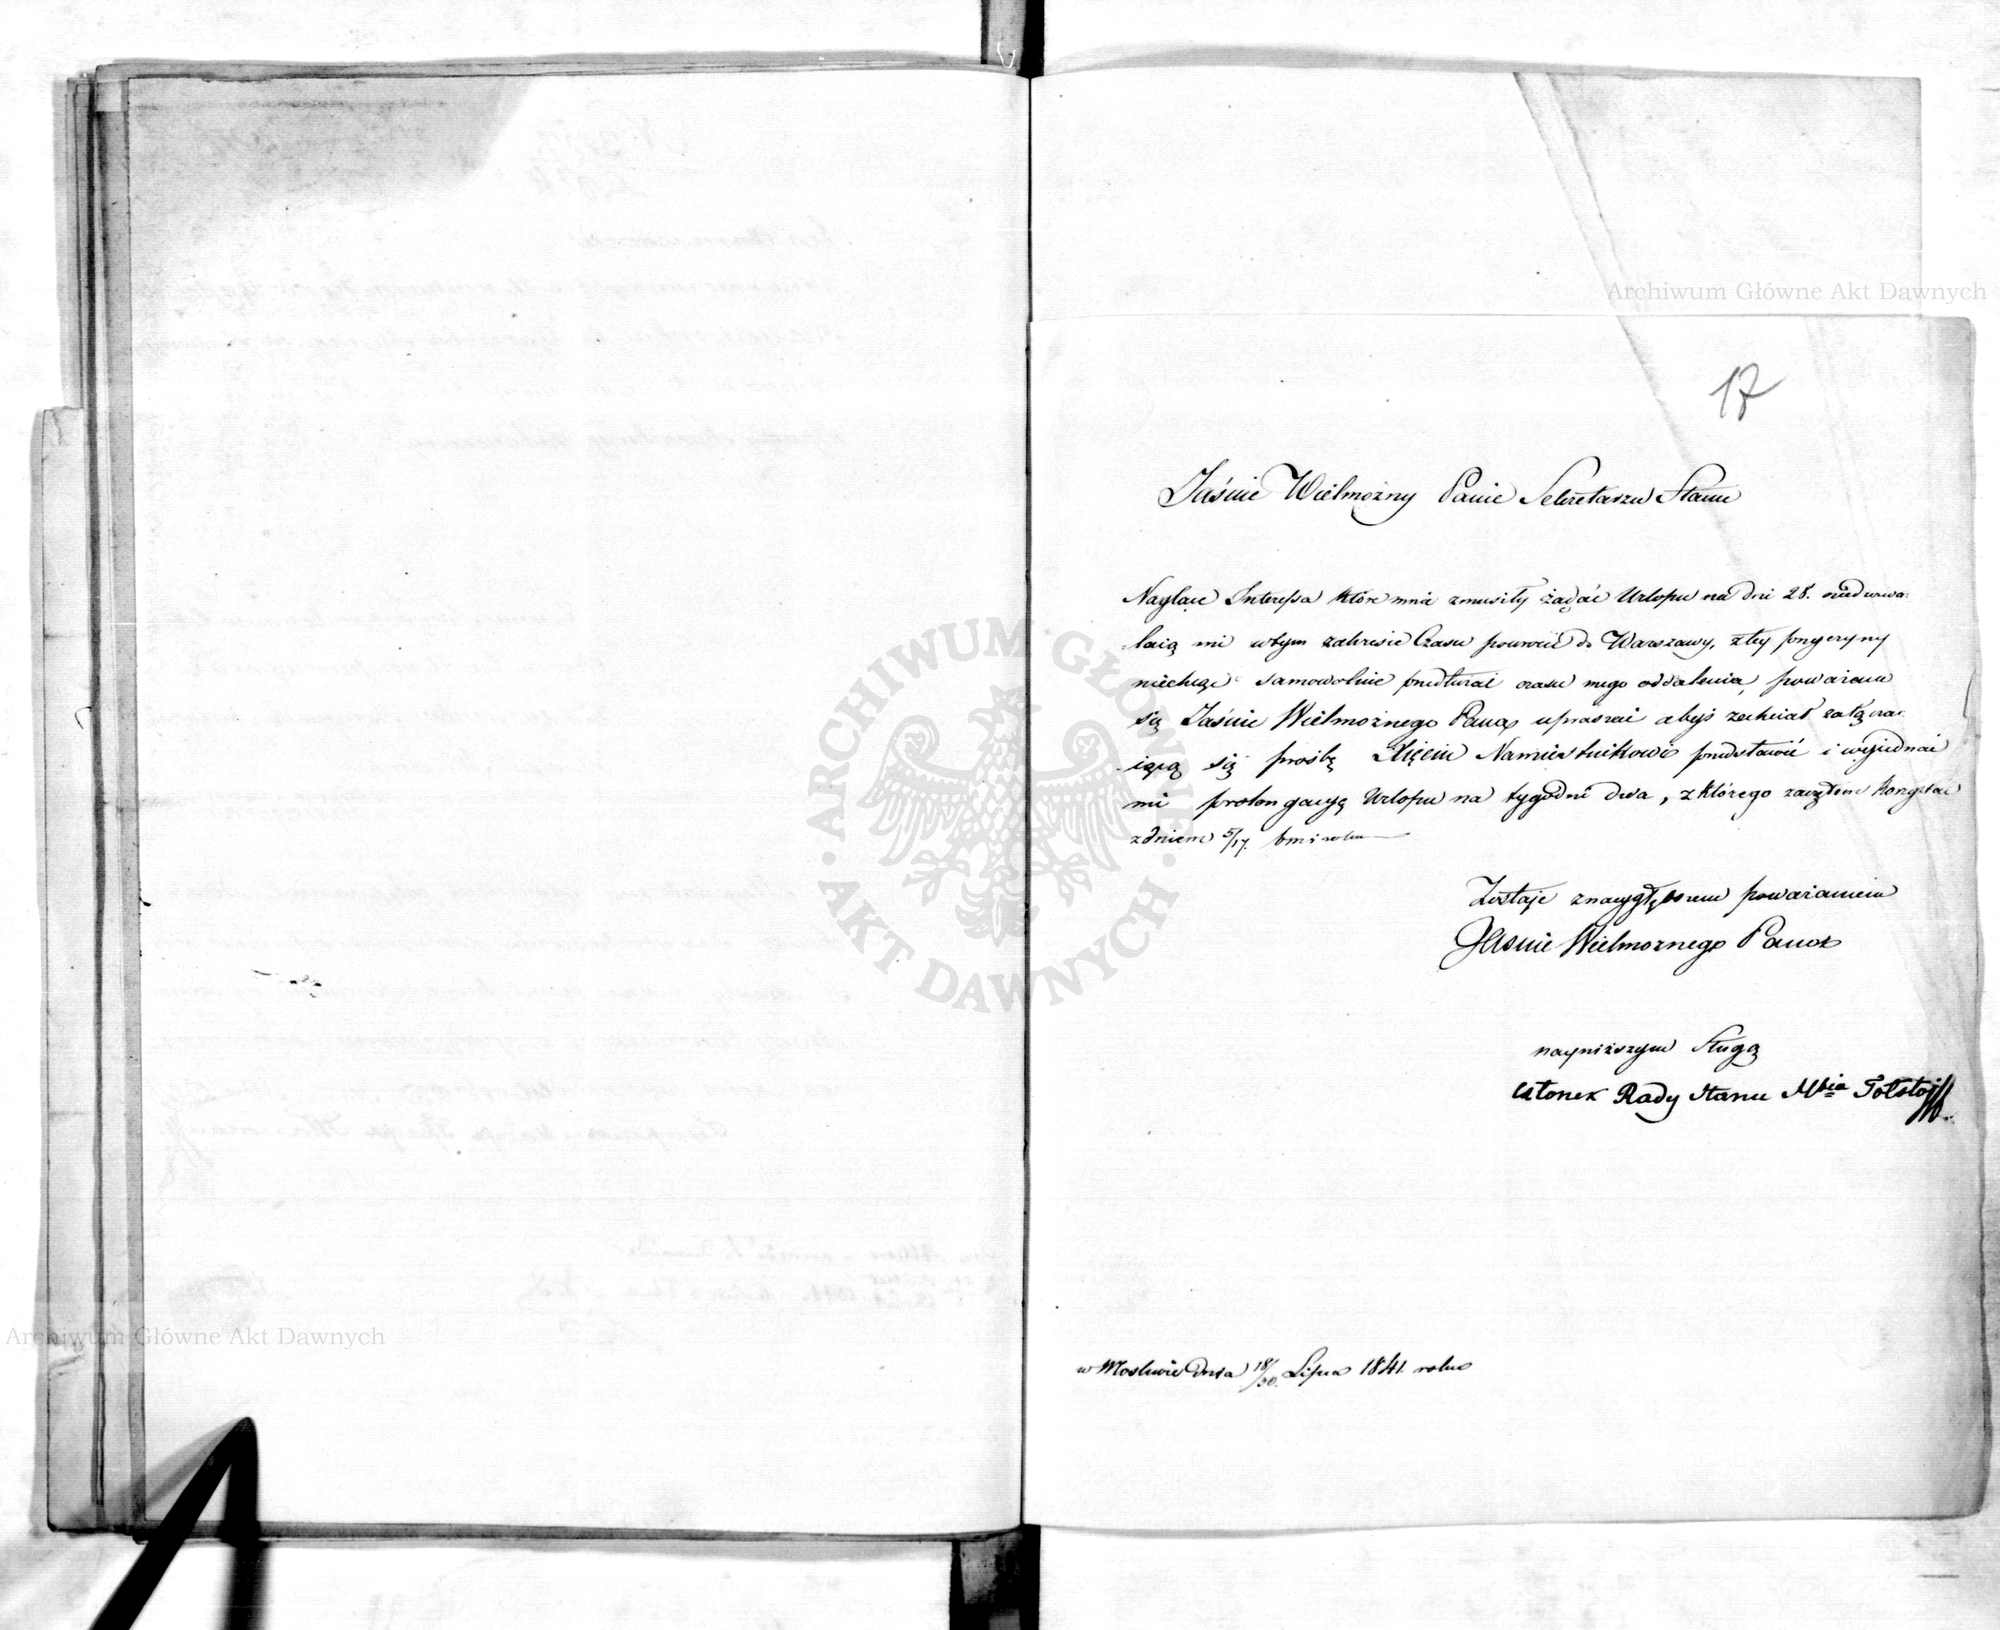 17
Jaśnie Wielmożny Panie Sekretarzu Stanu
Naglące Interessa które mnie zmusiły żądać Urlopu na dni 28. niedozwa:
:laią mi wtym zakresie Czasu powrócić do Warszawy, ztey przyczyny
niechcąc samowolnie przedłużać czasu mego oddalenia, poważam
się Jaśnie Wielmożnego Pana upraszać abyś zechciał załącza:
:iącą się prośbę Xięciu Namiestnikowi przedstawić i wyjednać
mi prolongacyą Urlopu na tygodni dwa, z którego zacząłem korzystać
z dniem 5/17. bm i roku
Zostaję znaygłębszem poważaniem
Jaśnie Wielmożnego Pana
nayniższym Sługą
Członek Rady Stanu Hbia Tołstoj
w Moskwie dnia 18/30. Lipca 1841. roku
Archiwum Główne Akt Dawnych
Archiwum Główne Akt Dawnych
ARCHIWUM GŁÓWNE AKT DAWNYCH